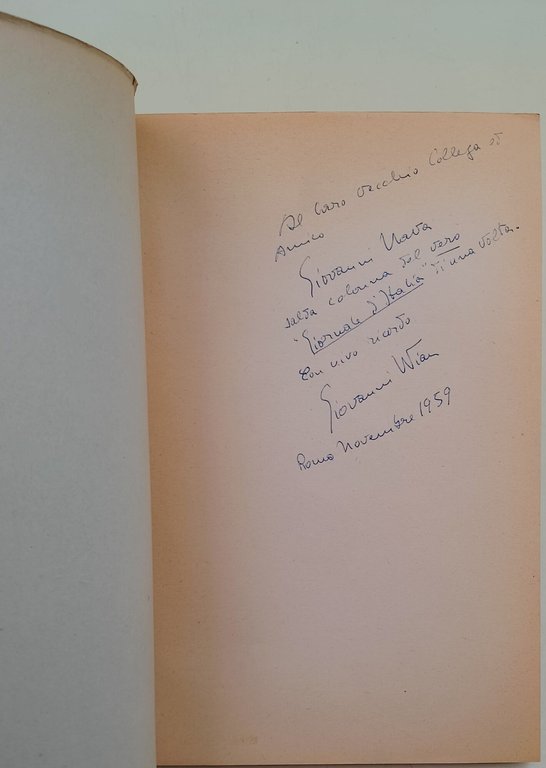 Al Caro vecchio Collega ed
Amico
Giovanni Nava
salda colonna del vero
"Giornale d'Italia" di una volta.
Con vivo ricordo
Giovanni Wian
Roma Novembre 1959